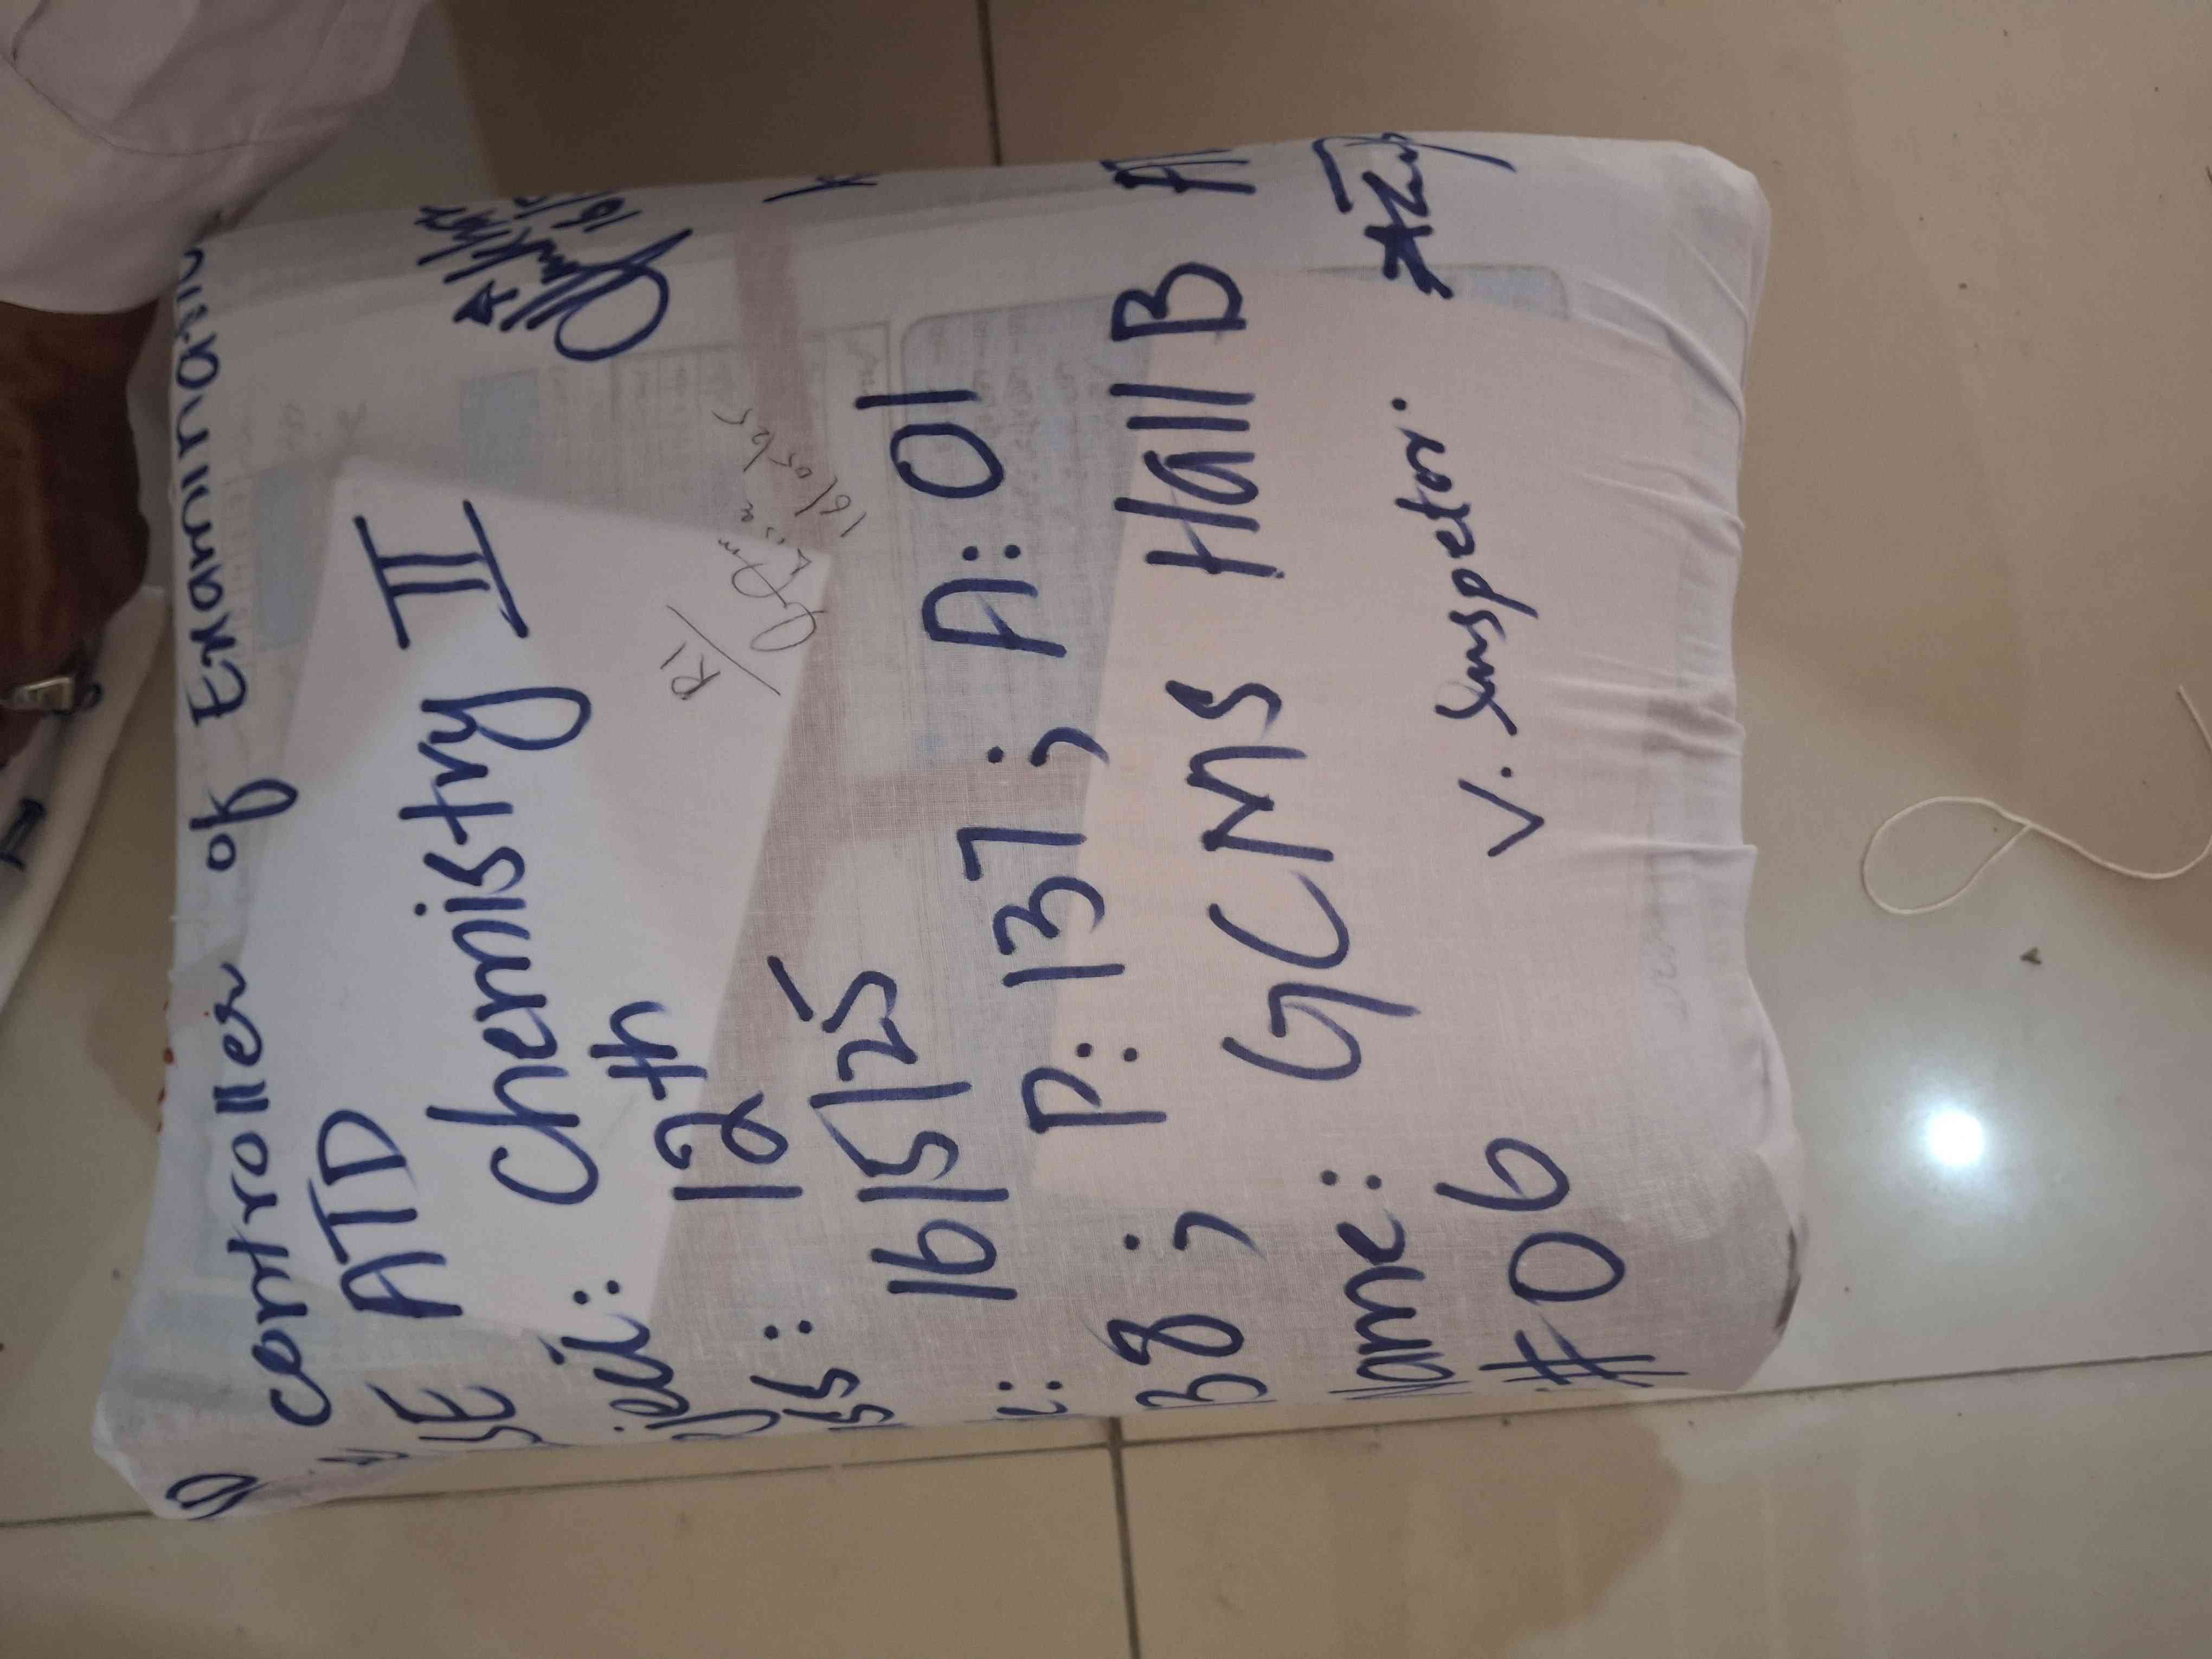 Controller of Examination
SE ATD
ject: Chemistry II
ss: 12th
16/5/25
R1
16/05/25
38; P: 137; A: 01
Name: GCMS Hall B
#06
V. Inspector.